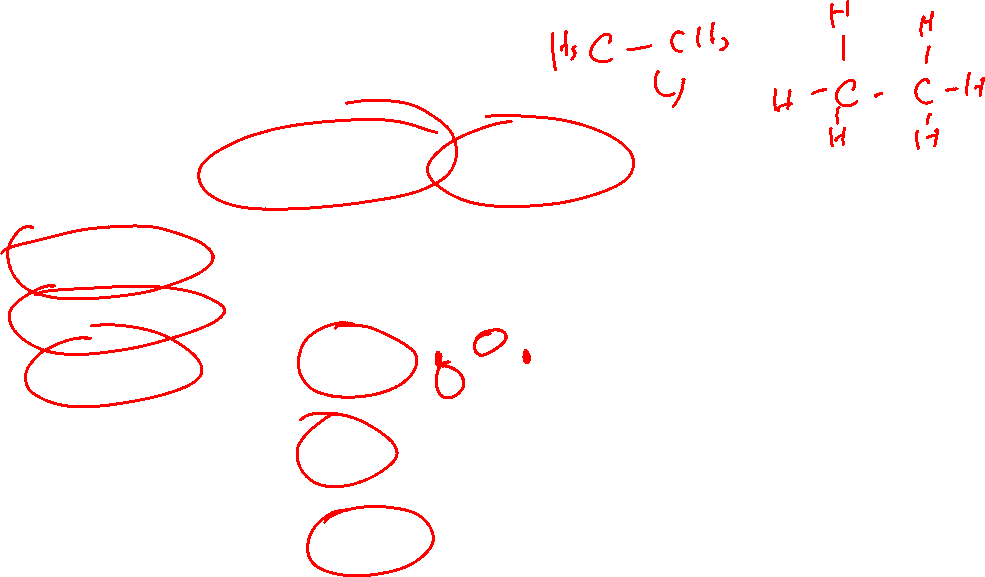 H₃C – CH₃
H H
H – C – C – H
H H